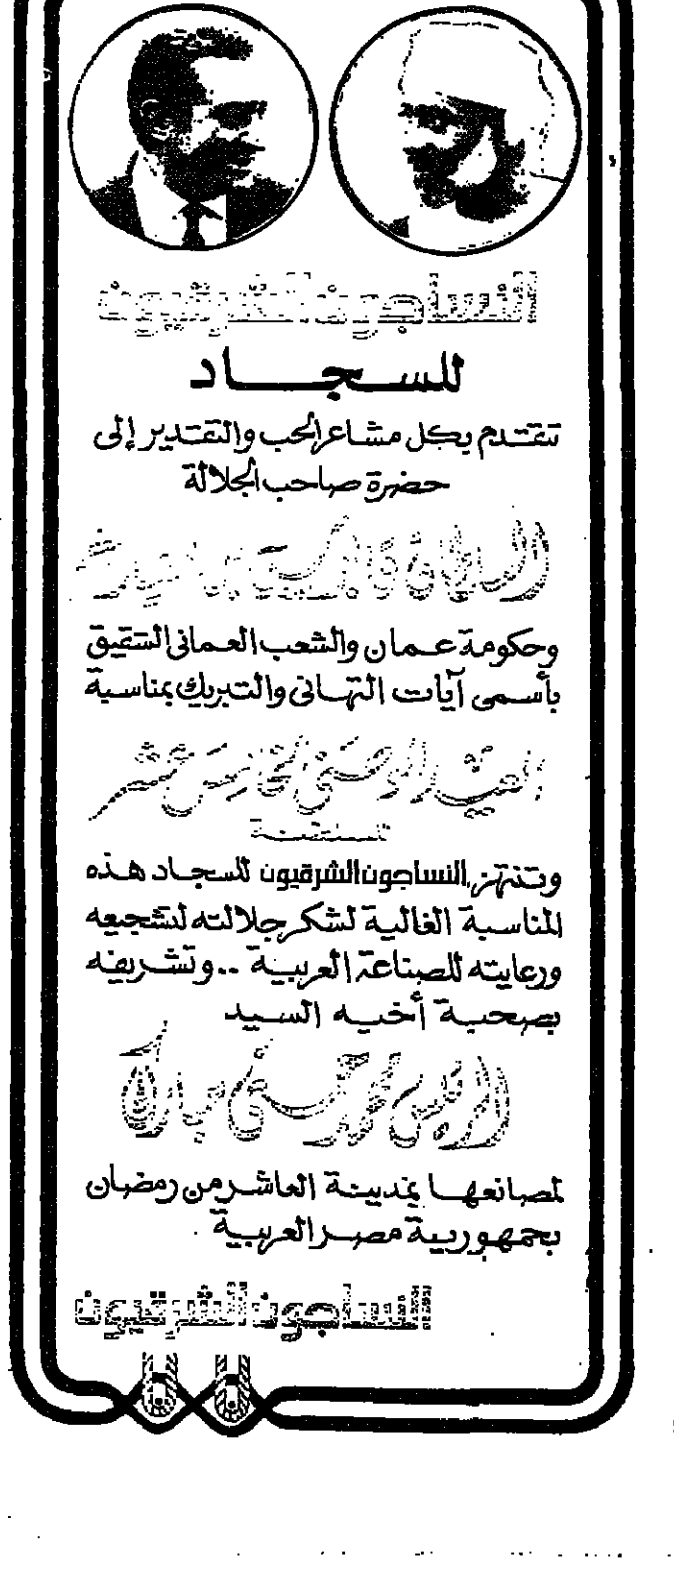 النساجون الشرقيون
للسجاد
تتقدم بكل مشاعر الحب والتقدير إلى
حضرة صاحب الجلالة
السلطان قابوس بن سعيد
وحكومة عمان والشعب العمانى الشقيق
بأسمى آيات التهانى والتبريك بمناسبة
العيد الوطنى الخامس عشر
للسلطنة
وتنتهز النساجون الشرقيون للسجاد هذه
المناسبة الغالية لشكر جلالته لتشجيعه
ورعايته للصناعة العربية .. وتشريفه
بصحبة أخيه السيد
الرئيس محمد حسنى مبارك
لمصانعها بمدينة العاشر من رمضان
بجمهورية مصر العربية
النساجون الشرقيون